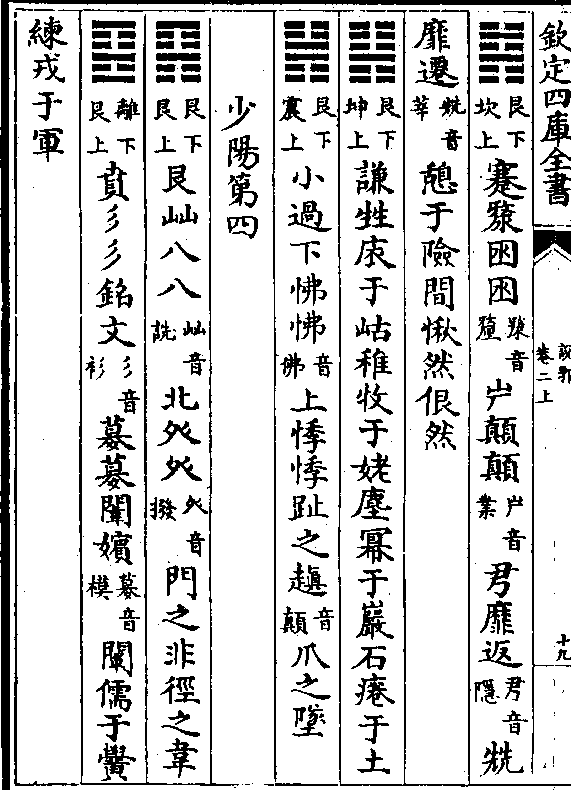 欽定四庫全書
說郛
卷二上
十九
艮下坎上 蹇䝥困困䝥音㱩屵顛顛屵音業君靡返君音隱兟
靡遷兟音莘憩于險間愀然佷然
艮下坤上 謙甡㡿于岵稚牧于姥塵冪于巖石瘞于土
艮下震上 小過下怫怫音佛上悸悸趾之趨音顛爪之墜
少陽第四
艮下艮上 艮屾八八屾音詵北癶癶癶音撥門之非徑之韋
離下艮上 賁彡彡銘文彡音衫慕慕闈嬪慕音模闈儒于黌
練戎于軍